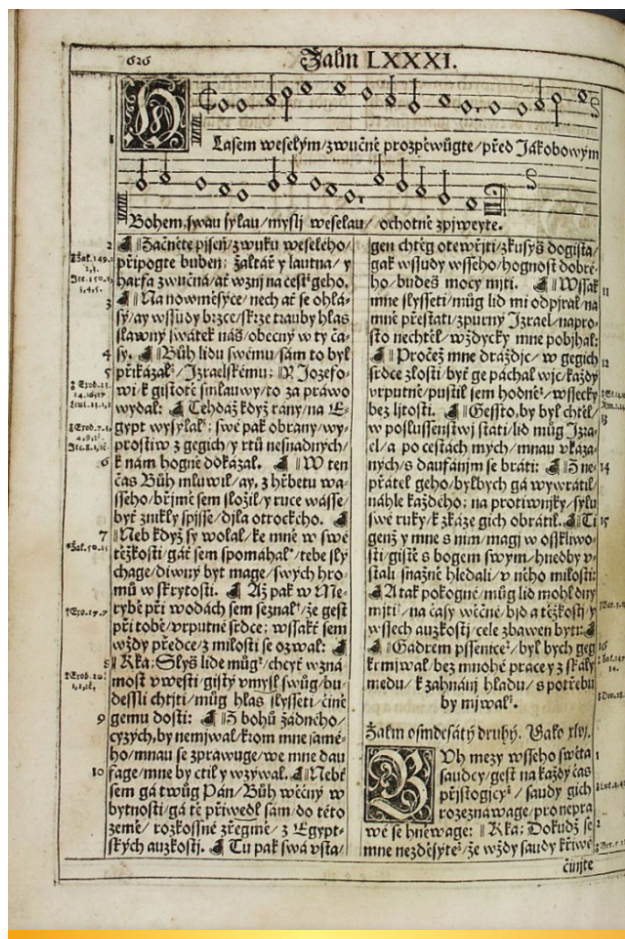 626
Žalm LXXXI.
Lasem weselým/zwučně prozpěwůgte/před Jákobowým
Bohem, swau sylau/myslj weselau/ ochotně zpjweyte.
2
Začněte pjseň/zwuku weselého/
připogte buben: žaltář y lautna/ y
harfa zwučná/ať wznj na čest geho.
3
Na nowměsýce/nech ať se ohlá-
sý/ay wssudy brzce/skrze trauby hlas
slawný swátek náš/obecný w ty ča-
4
sy. Bůh lidu swému/sám to byl
5
přikázal/Izraelskému: Y Jozefo-
wi k gistotě smlauwy/to za práwo
wydal: Tehdáž když rany/na E-
gypt wysýlal: swé pak obrany/wy-
prostiw z gegich/y rtů nesnadných/
6
k nám hogně dokázal. W ten
čas Bůh mluwil/ay, z hřbetu wa-
sseho/břjmě sem složil/y ruce wásse/
byť znikly spjsse/djla otrockého.
7
Neb když sy wolal/ke mně w swé
Žal. 50.
těžkosti/gáť sem spomáhal/tebe sly
chage/diwný byt mage/swých hro-
mů w skrytosti. Až pak w Me-
rybě při wodách sem seznal/že gest
při tobě/vrputné srdce: wssakť sem
wždy předce/z milosti se ozwal:
8
Řka: Slyš lide můg/chcyť wzná
most vwesti/gistý vmysl swůg/bu-
dessli chtjti/můg hlas slysseti/čině
9
gemu dosti: Z bohů žádného/
cyzých, by nemjwal/krom mne samé-
ho/mnau se zprawuge/we mne dau
10
fage/mne by ctil y wzýwal. Nebť
sem gá twůg Pán/Bůh wěčný w
bytnosti/gá tě přiwedl sám/do této
země/ rozkossné zřegmě/ z Egypt-
ských auzkostj. Tu pak swá vsta/
gen chtěg otewřjti/zkusýš dogista/
gak wssudy wsseho/hognost dobré-
ho/budeš mocy mjti. Wssak
11
mne slysseti/můg lid mi odpjral/na
mně přestati/zpurný Izrael/napro-
sto nechtěl/wždycky mne pobjhal:
Pročež mne dráždjc/w gegich
12
srdce zlosti/byť ge páchal wjc/každý
vrputně/pustil sem hodně/wssecky
13
bez ljtosti. Gessto, by byl chtěl/
w poslussenstwj státi/lid můg Izra-
el/a po cestách mých/mnau vkáza-
ných/s daufánjm se bráti: Z ne-
14
přátel geho/bylbych gá wywrátil/
náhle každého: na protiwnjky/sylu
swé ruky/k zkáze gich obrátil. Ti
15
genž y mne s njm/magj w osskliwo-
sti/gistě s bogem swým/hnedby v-
stali snažně hledali/v něho milosti:
A tak pokogně/můg lid mohl dny
mjti/na časy wěčné/bjd a těžkostj/y
wssech auzkostj/cele zbawen byti:
Gádrem pssenice/byl bych geg
16
krmjwal/bez mnohé práce y z skály
medu/k zahnánj hladu/s potřebu
by mjwal.
Žalm osmdesátý druhý. Gako xlvj.
1
Bůh mezy wsseho swěta
saudcy/gest na každý čas
přjstogjcý/ saudy gich
rozeznáwage/pro nepra
2
wé se hněwage: Řka: Dokudž se
mne nezděsýte/že wždy saudy křiwé
činjte